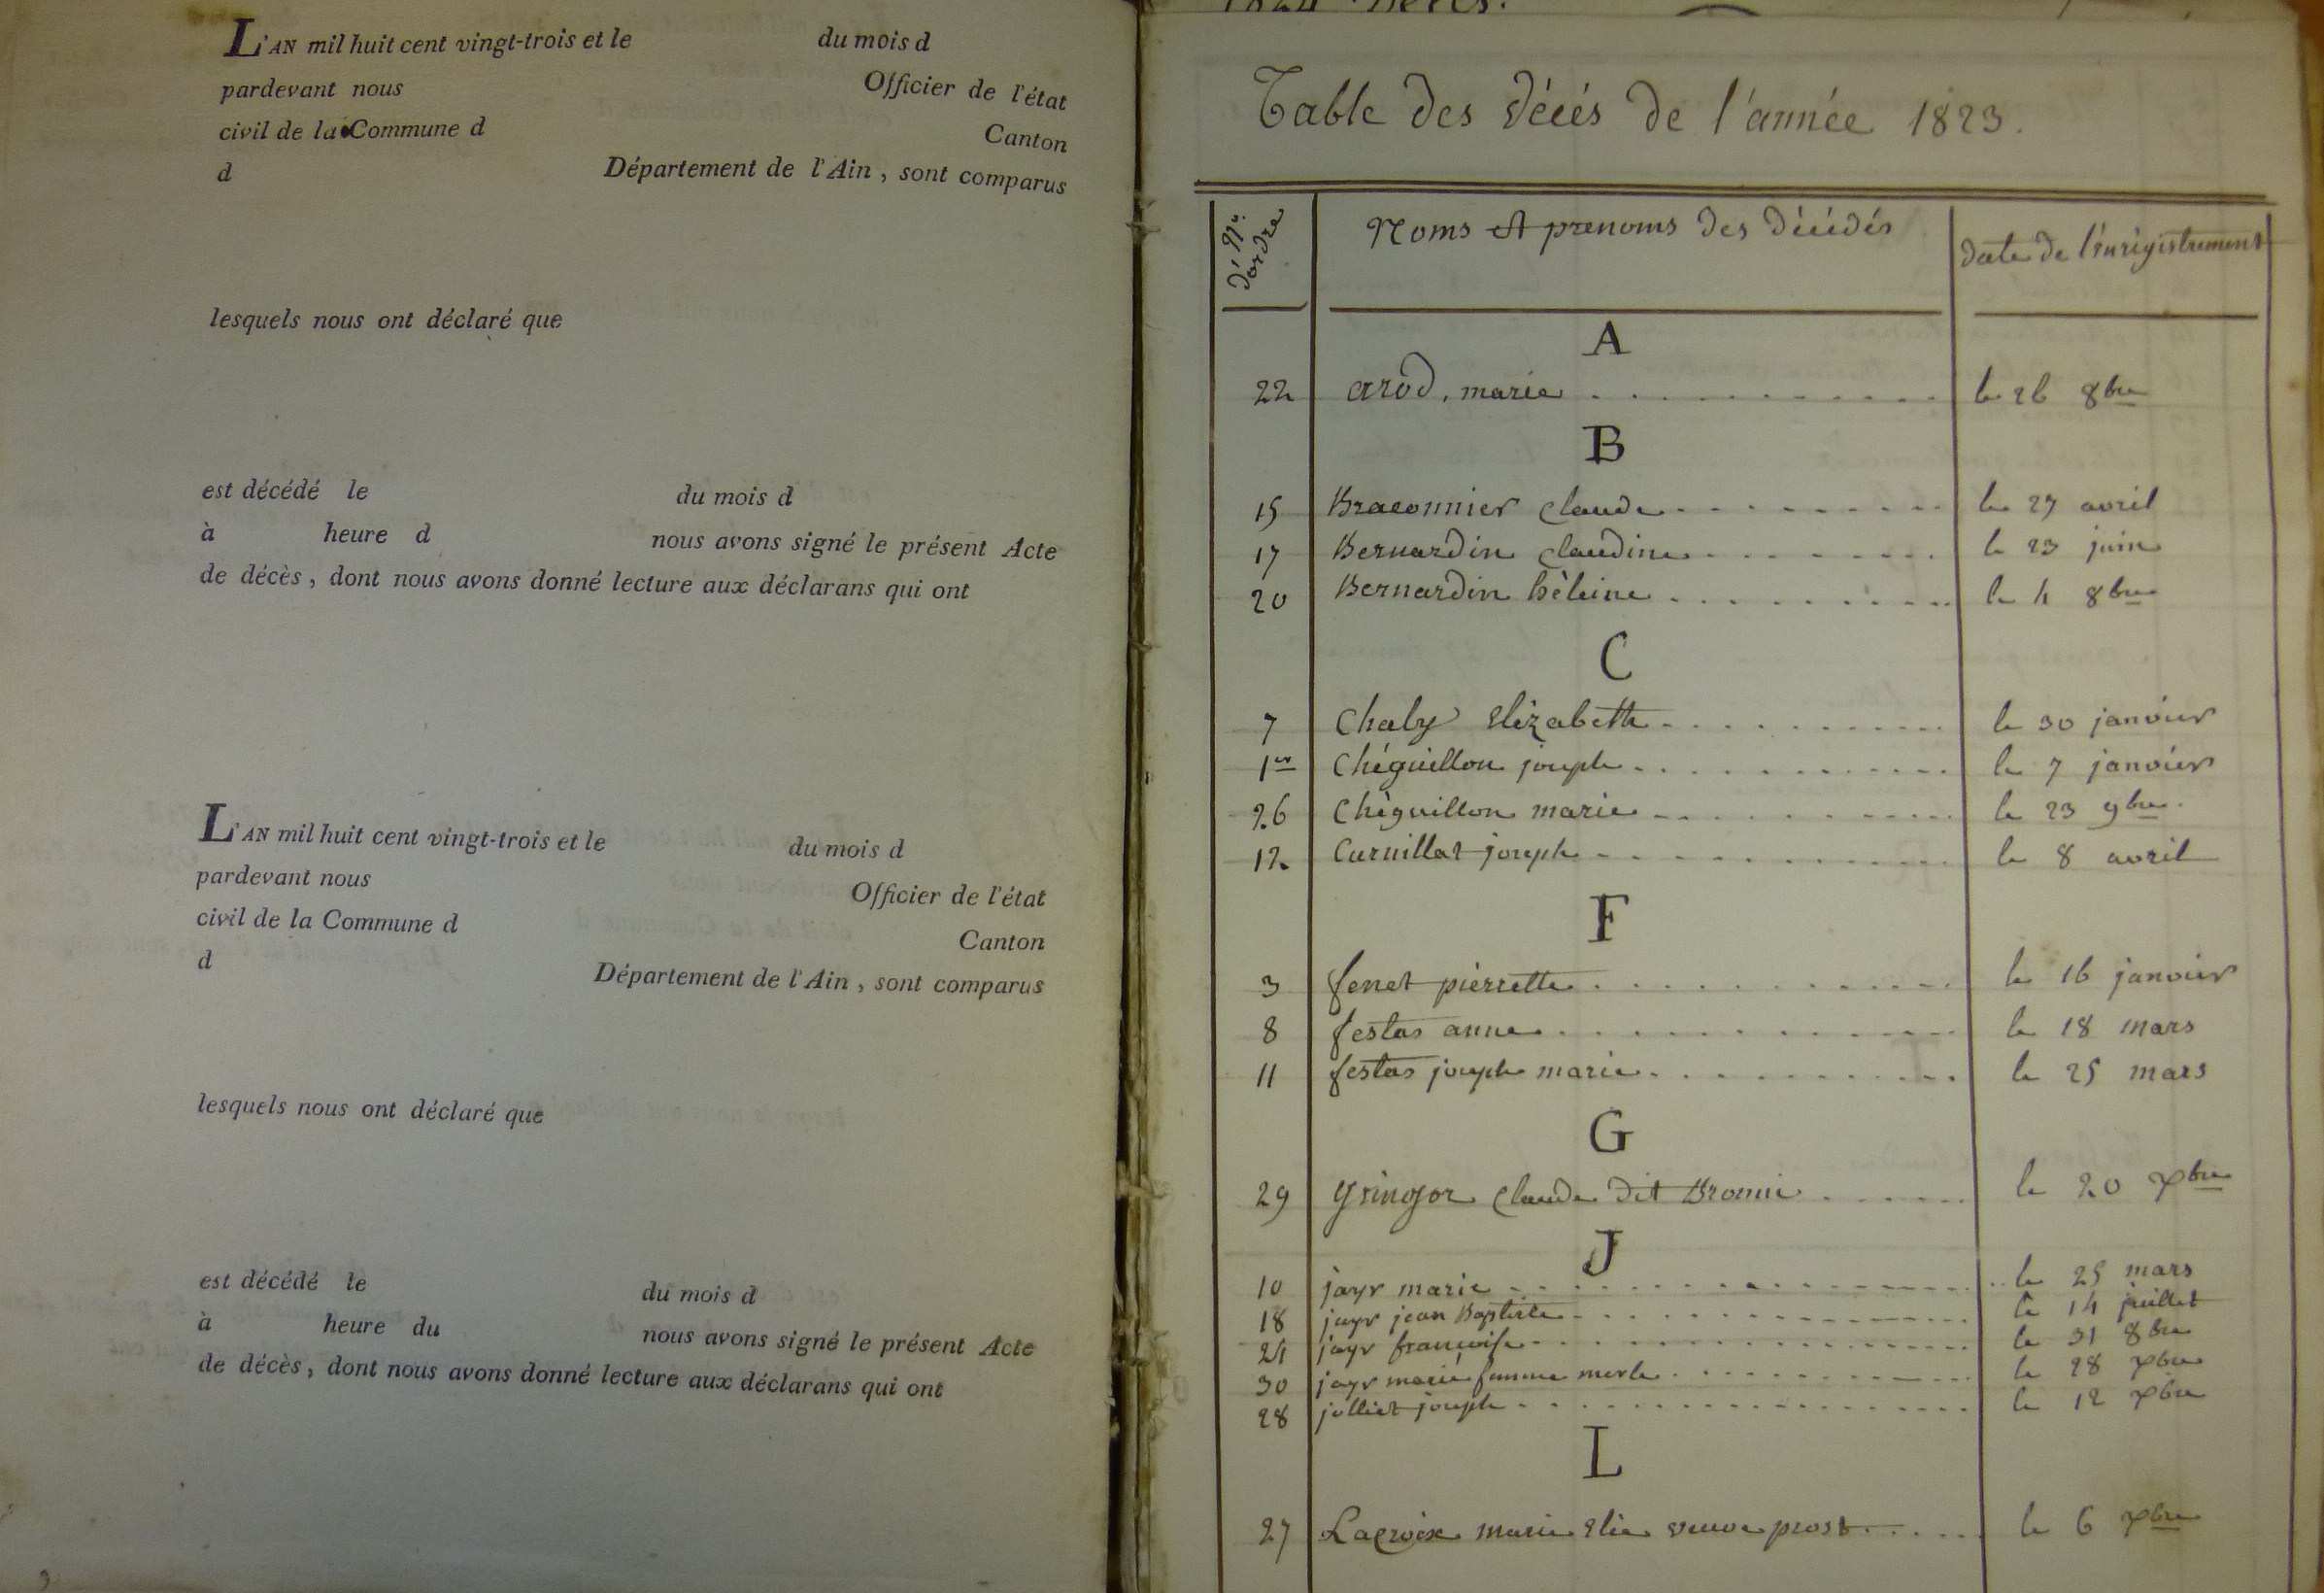 L'AN mil huit cent vingt-trois et le du mois d
pardevant nous Officier de l'état
civil de la Commune d Canton
d Département de l'Ain, sont comparus
lesquels nous ont déclaré que
est décédé le du mois d
à heure d nous avons signé le présent Acte
de décès, dont nous avons donné lecture aux déclarans qui ont
L'AN mil huit cent vingt-trois et le du mois d
pardevant nous Officier de l'état
civil de la Commune d Canton
d Département de l'Ain, sont comparus
lesquels nous ont déclaré que
est décédé le du mois d
à heure du nous avons signé le présent Acte
de décès, dont nous avons donné lecture aux déclarans qui ont
Table des décés de l'année 1823.
d'ordre Noms et prenoms des décédés date de l'enrégistrement
A
22 arod, marie le 26 8bre
B
15 Braconnier claude le 27 avril
17 Bernardin claudine le 23 juin
20 Bernardin héleine le 4 8bre
C
7 Chaly Elizabeth le 30 janvier
1er Chéguillon joseph le 7 janvier
26 Chéguillon marie le 23 9bre
12 Curnillat joseph le 8 avril
F
3 fenet pierrette le 16 janvier
8 festas anne le 18 mars
11 festas joseph marie le 25 mars
G
29 gringoz claude dit le 20 xbre
J
10 jayr marie le 25 mars
18 jayr jean Baptiste le 14 juillet
21 jayr françoise le 31 8bre
30 jayr marie femme merle le 28 xbre
28 jolliet joseph le 12 xbre
L
27 Lacroix marie Elie veuve prost le 6 xbre